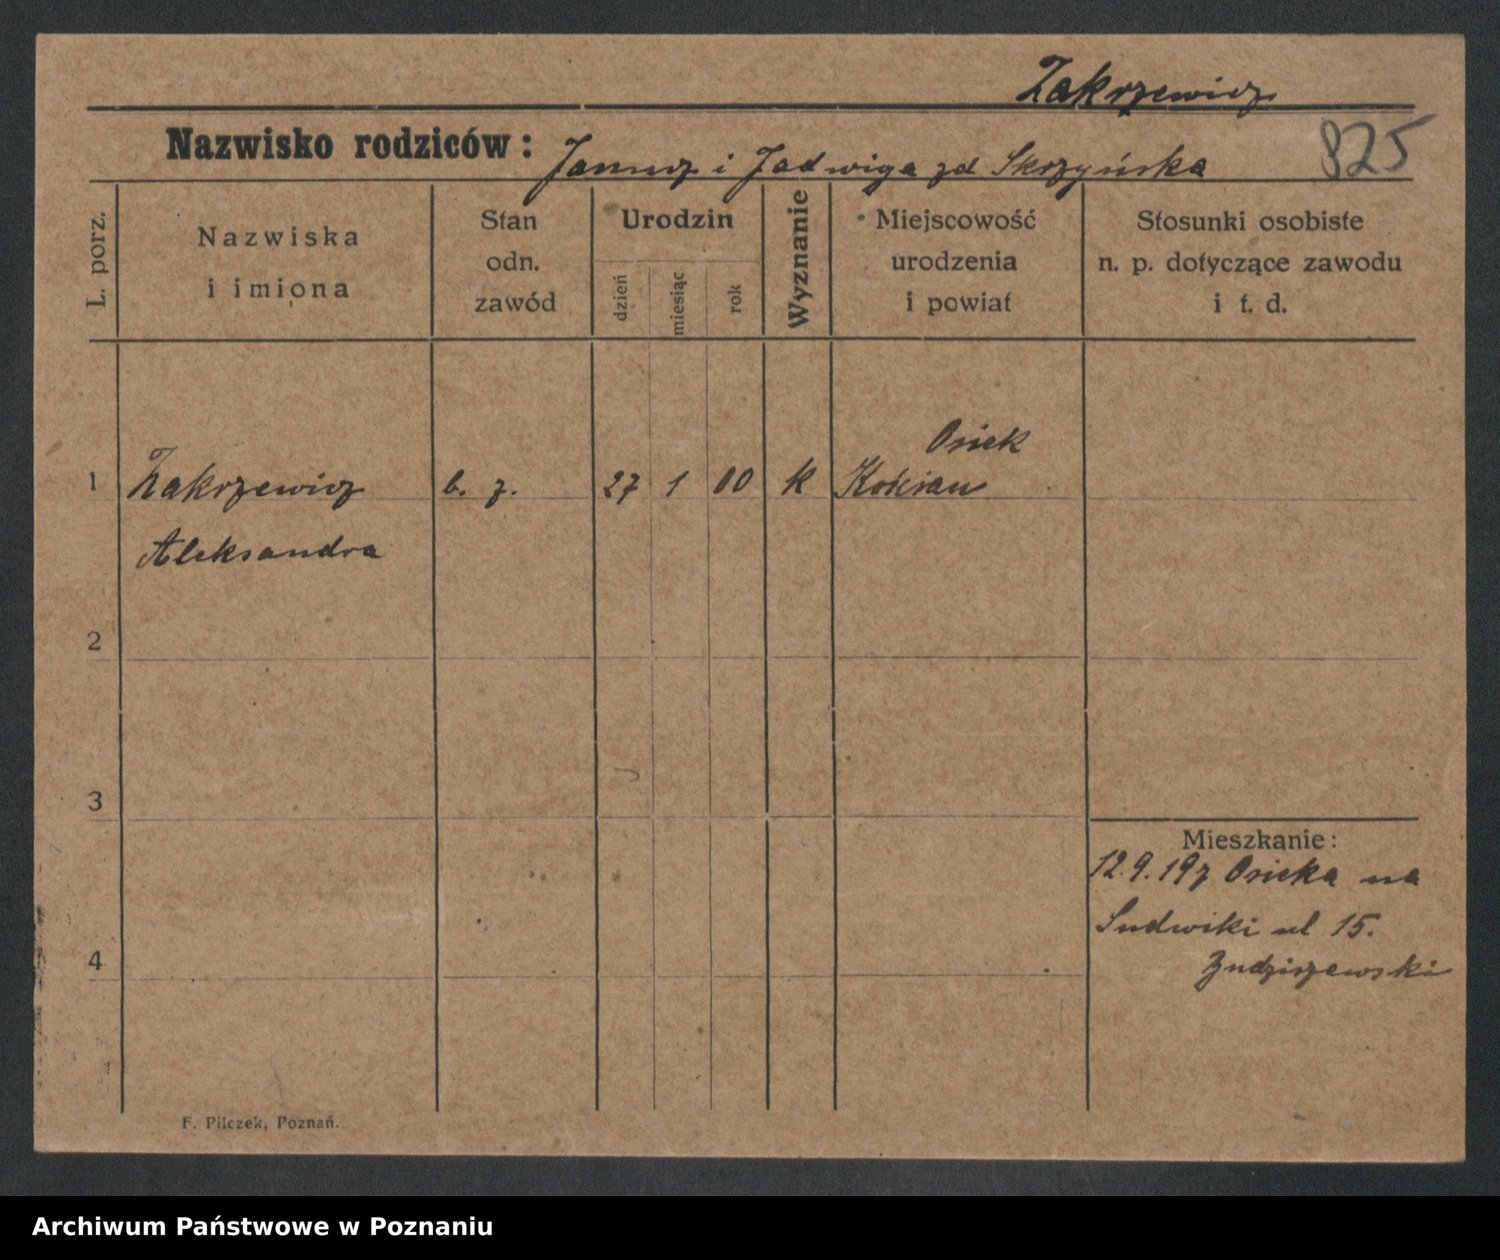 Zakrzewicz
Nazwisko rodziców: Janusz i Jadwiga zd Skrzyńska
825
L. porz.
Nazwiska
i imiona
Stan
odn.
zawód
Urodzin
dzień
miesiąc
rok
Wyznanie
Miejscowość
urodzenia
i powiat
Stosunki osobiste
n. p. dotyczące zawodu
i t. d.
Osiek
1 Zakrzewicz b. z. 27 1 00 k Kościan
Aleksandra
2
3
Mieszkanie:
12.9.19 z Osieka na
Ludwiki ul 15.
4
F. Pilczek, Poznań.
Archiwum Państwowe w Poznaniu